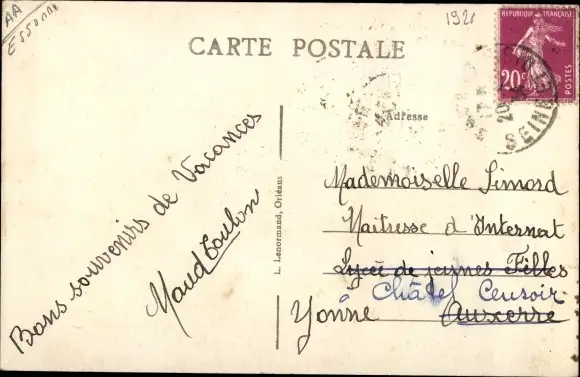 AA
Essonne
1921
RÉPUBLIQUE FRANÇAISE
20c
POSTES
CARTE POSTALE
SEINE
Adresse
L. Lenormand, Orléans
Bons souvenirs de Vacances
Maud Toulon
Mademoiselle Simard
Maitresse d'Internat
Lycée de jeunes Filles
à Châtel Censoir
Yonne Auxerre